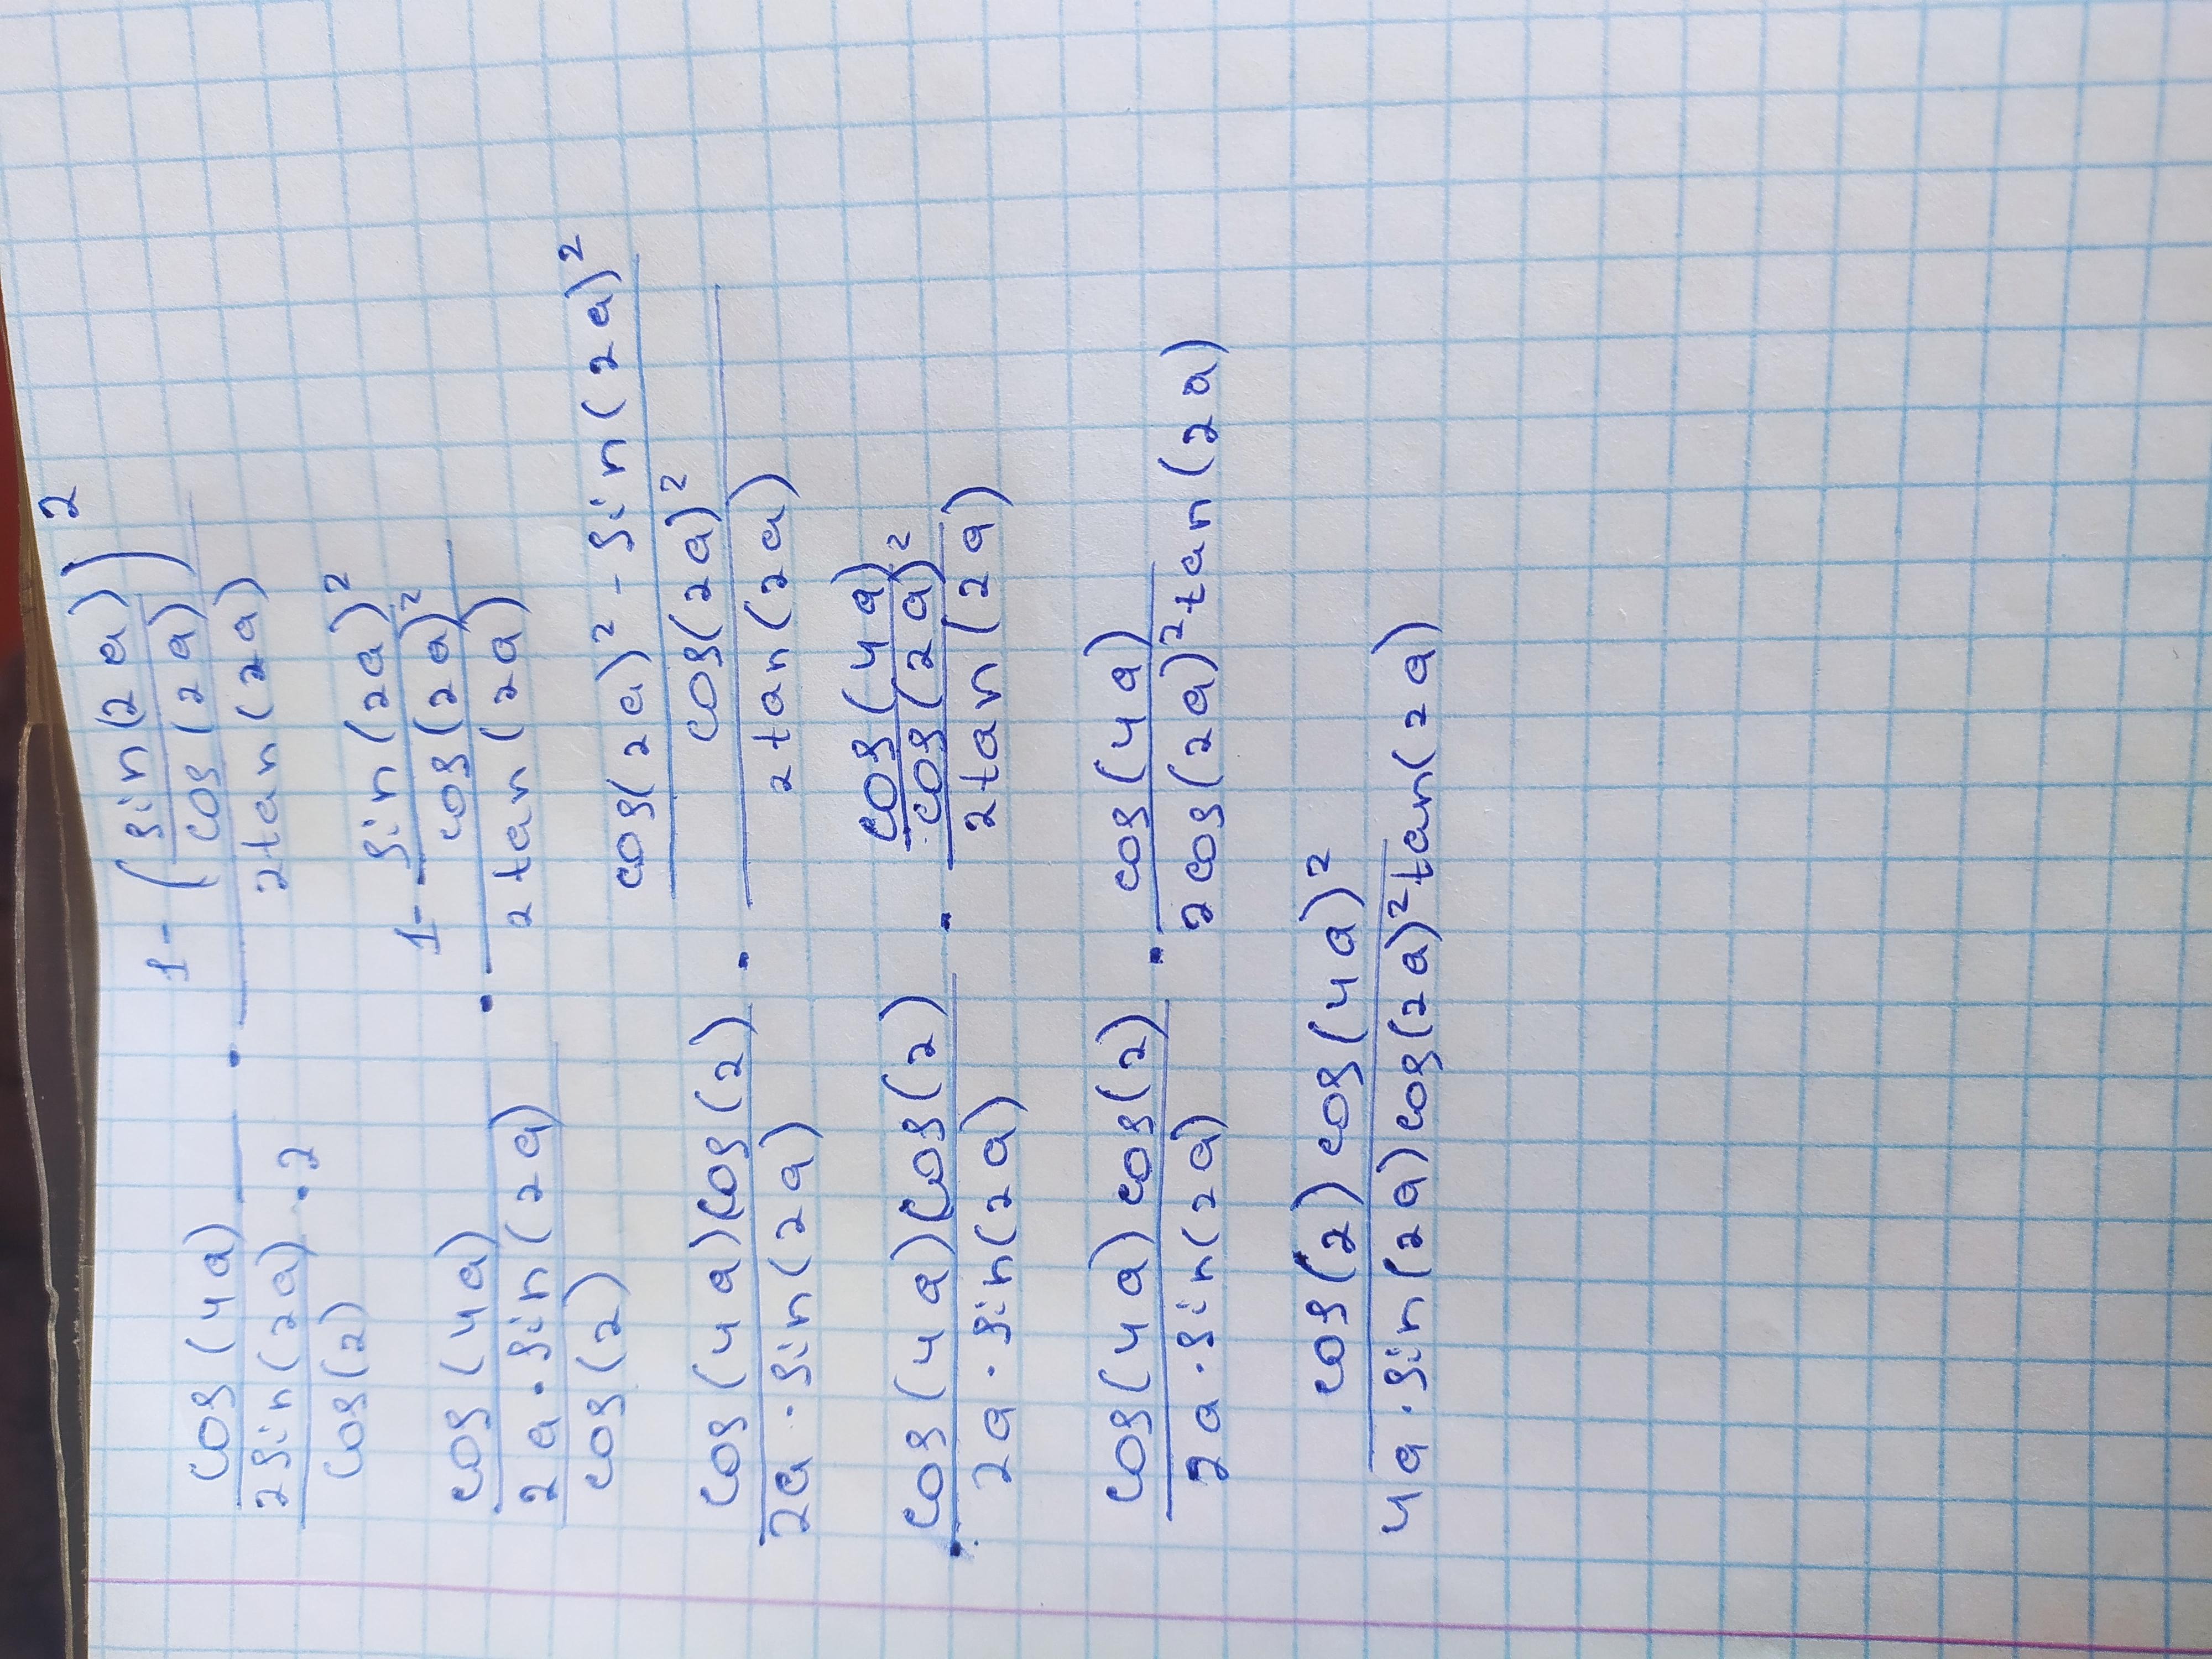 cos(4a) / (2sin(2a)·2 / cos(2)) · (1-(sin(2a)/cos(2a))²) / 2tan(2a)
cos(4a) / (2a·sin(2a) / cos(2)) · (1-sin(2a)²/cos(2a)²) / 2tan(2a)
cos(4a)cos(2) / 2a·sin(2a) · ((cos(2a)²-sin(2a)²) / cos(2a)²) / 2tan(2a)
cos(4a)cos(2) / 2a·sin(2a) · (cos(4a) / cos(2a)²) / 2tan(2a)
cos(4a)cos(2) / 2a·sin(2a) · cos(4a) / 2cos(2a)²tan(2a)
cos(2)cos(4a)² / 4a·sin(2a)cos(2a)²tan(2a)